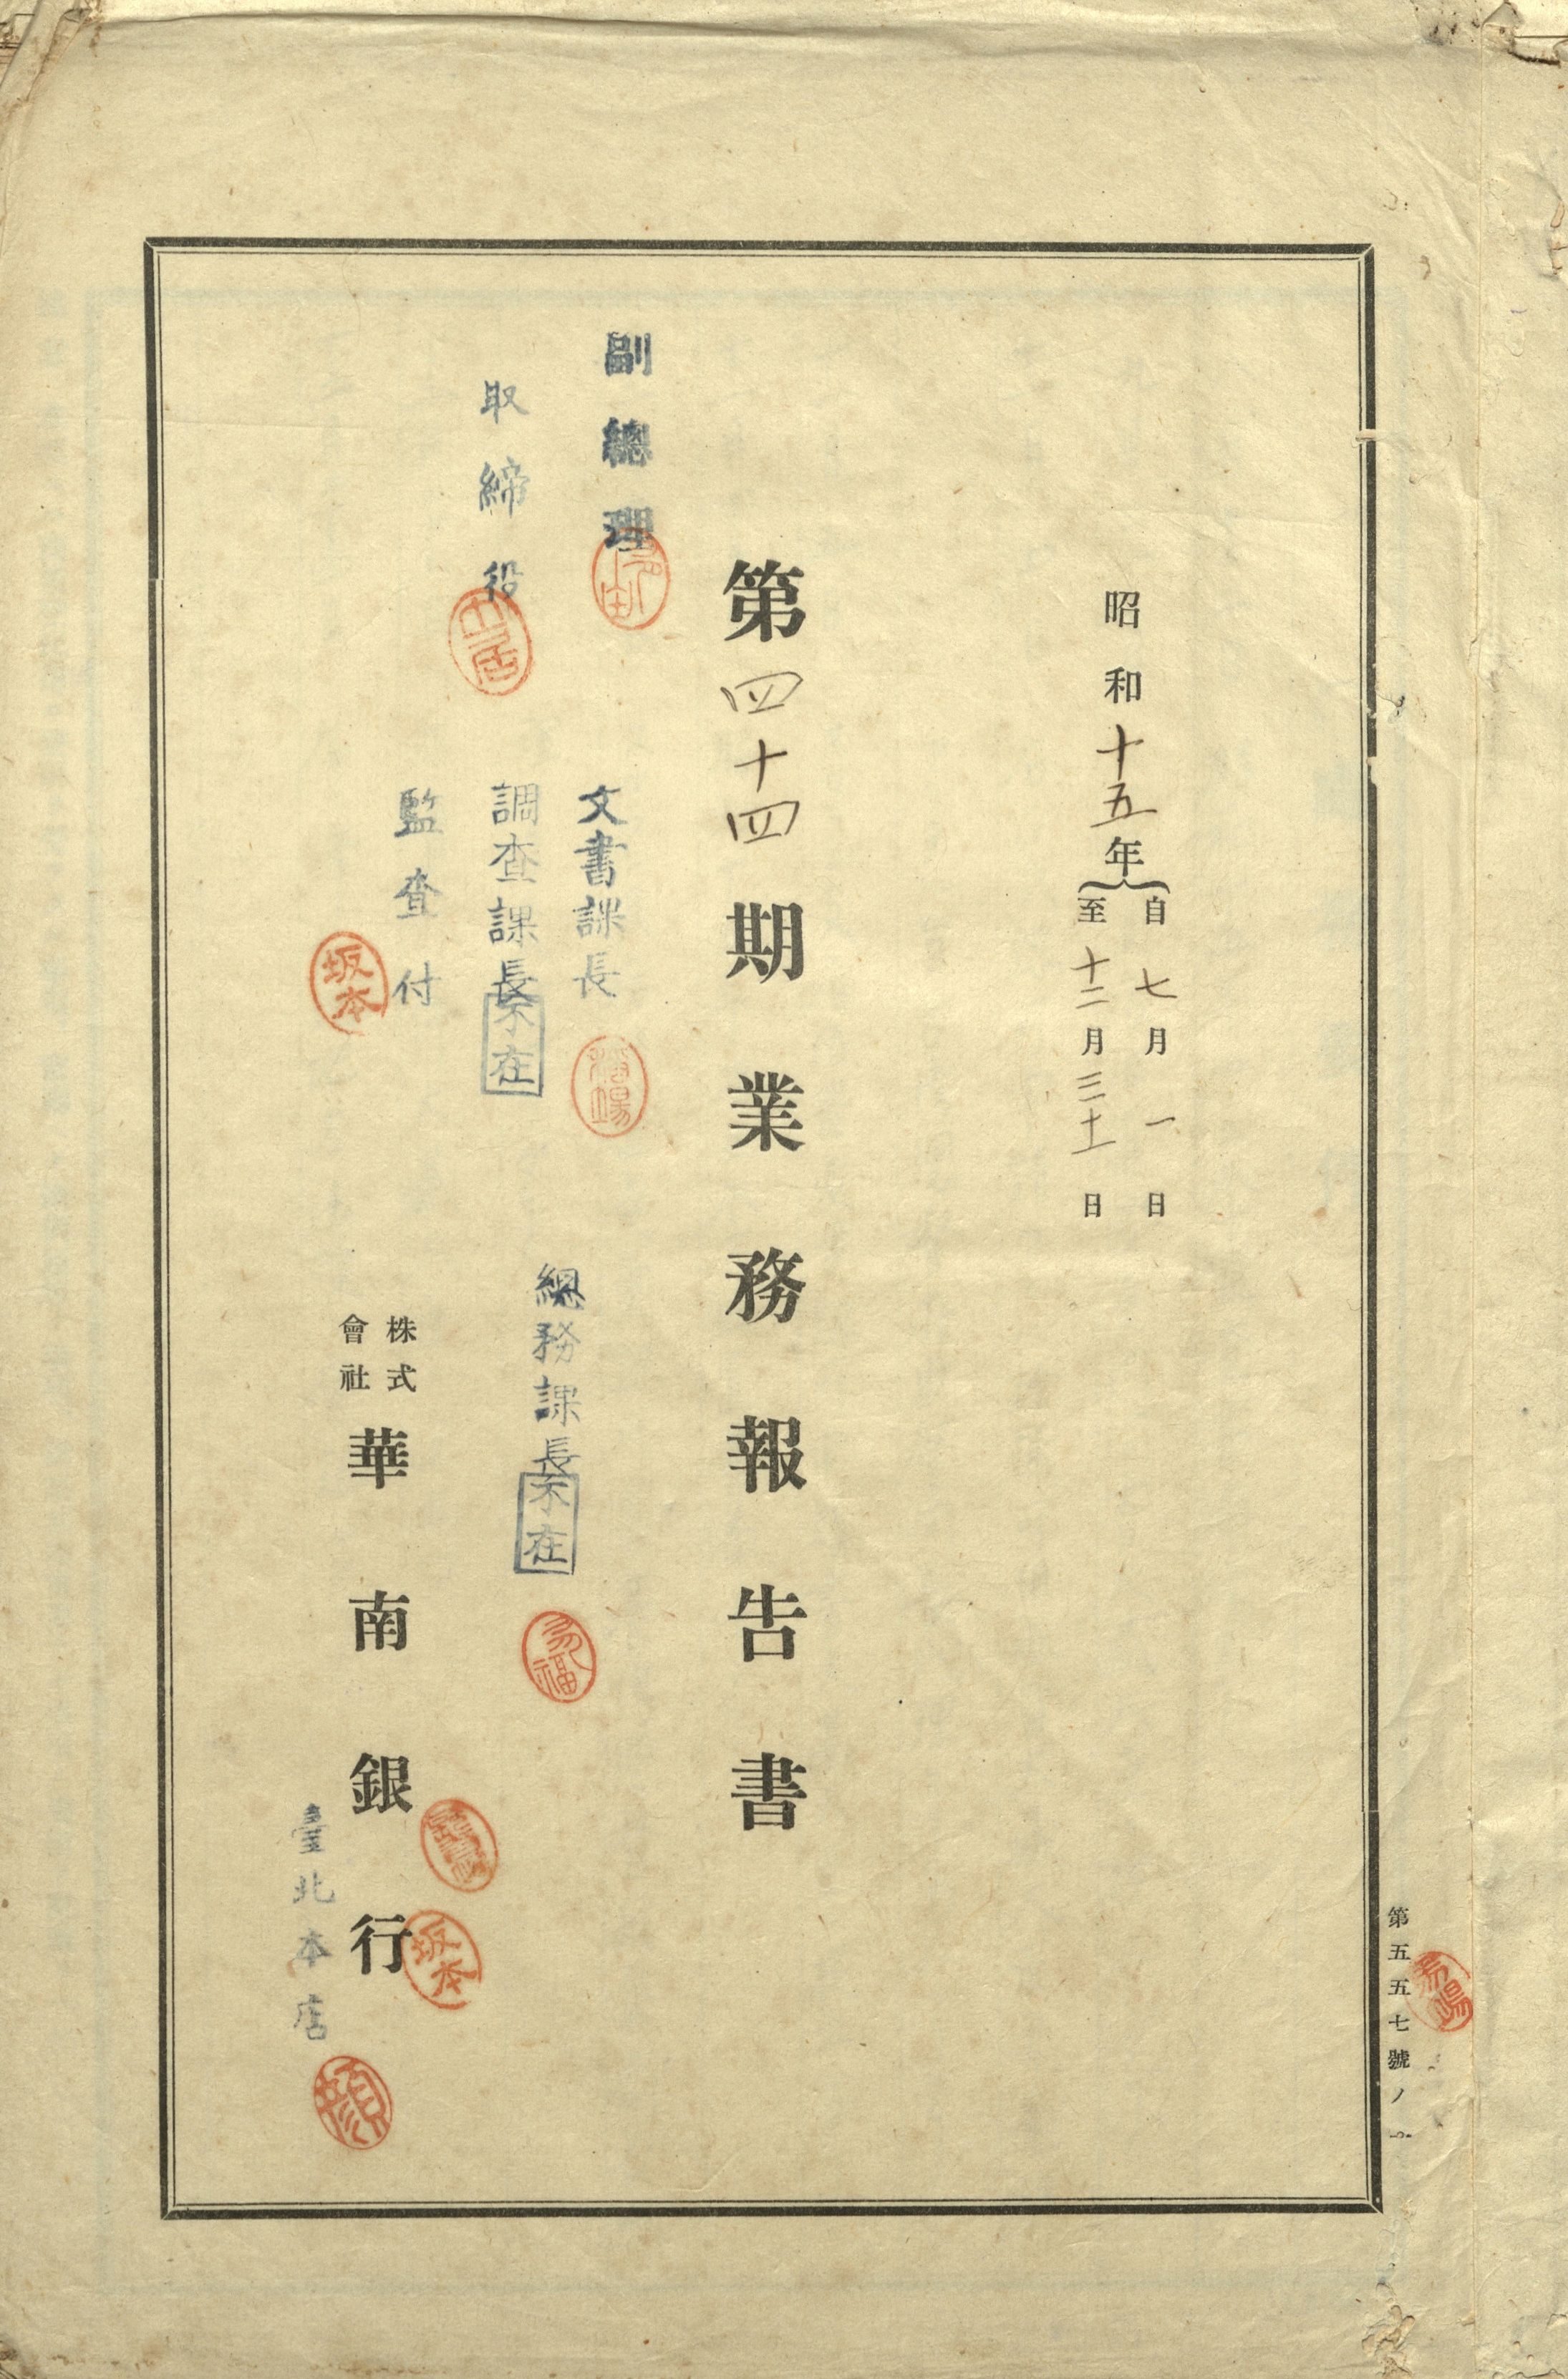 昭和十五年
自七月一日
至十二月三十一日
第四十四期業務報告書
副總理
取締役
土居
文書課長
調査課長
不在
監査付
坂本
總務課長
不在
株式
會社
華南銀行
坂本
臺北本店
顔
第五五七號ノ一